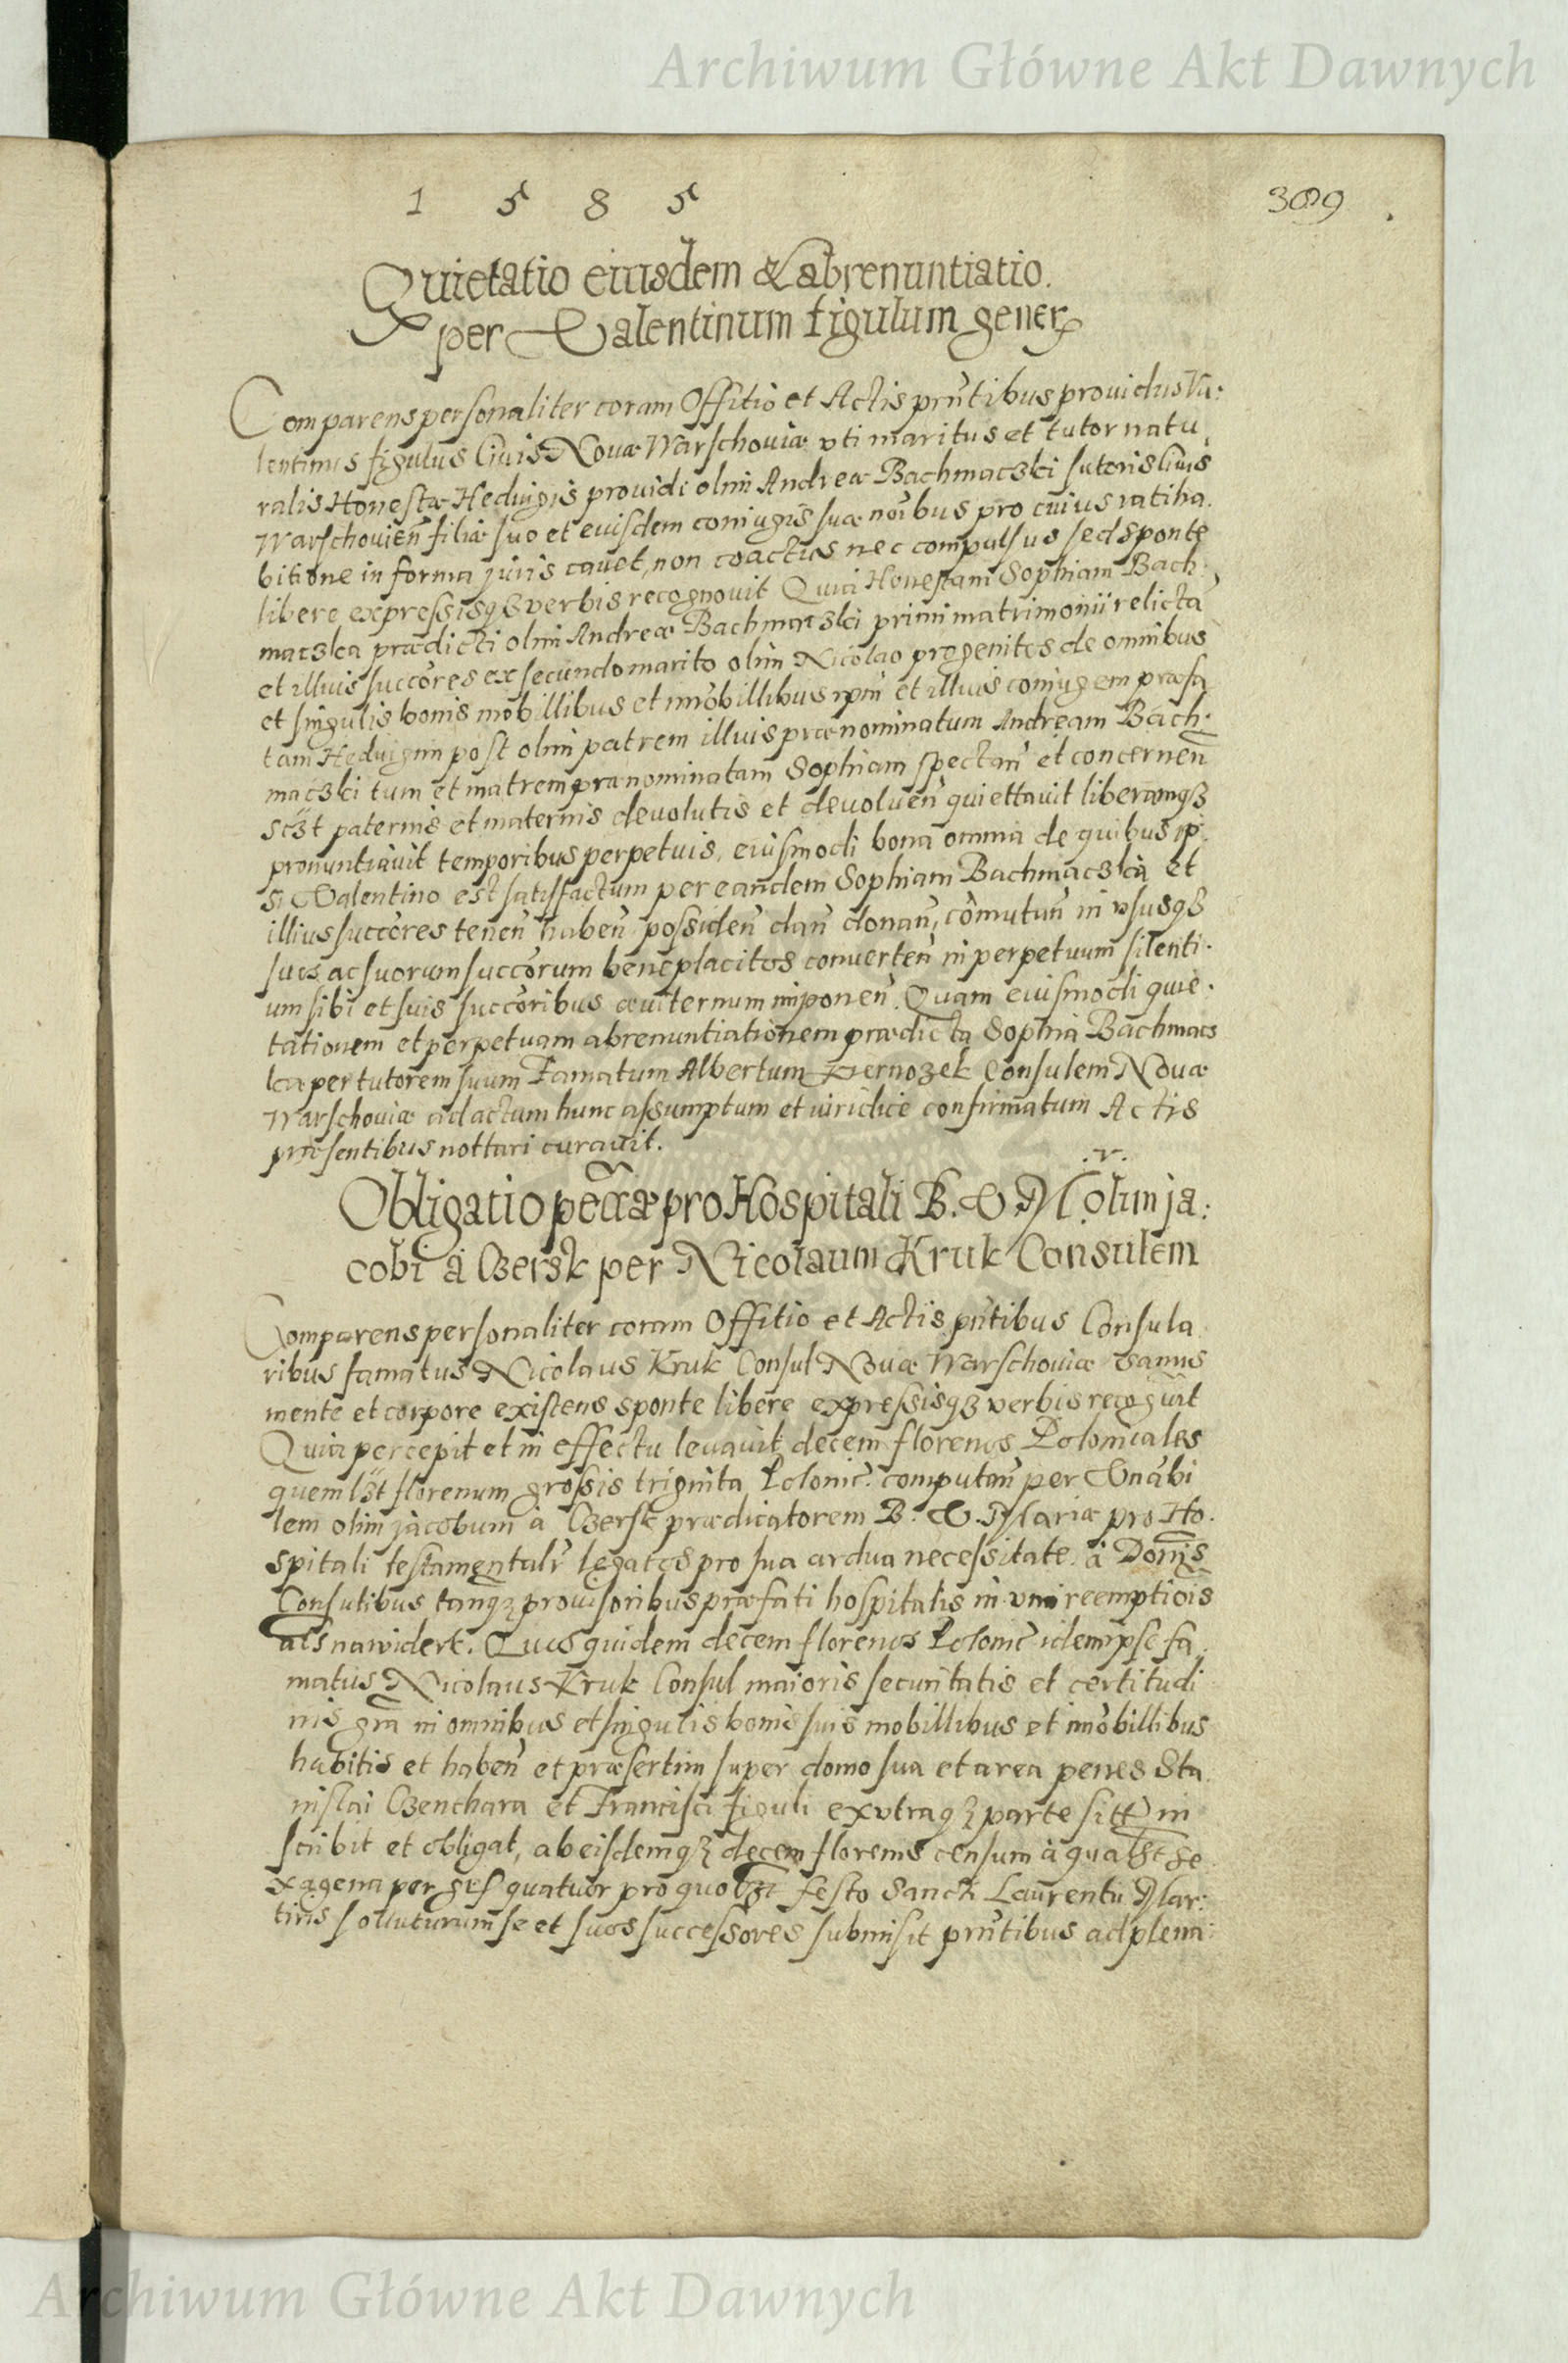 Archiwum Główne Akt Dawnych
1 5 8 5
309
Quietatio eiusdem & abrenuntiatio
per Valentinum figulum gener
Comparens personaliter coram Offitio et Actis pñtibus prouidus Va:
lentinus figulus Ciuis Nouæ Warschouiæ vti maritus et tutor natu
ralis Honestæ Heduigis prouidi olim Andreæ Bachmaczki sutoris Ciuis
Warschovień filiæ suo et eiusdem coniugis suæ noibus pro cuius ratiha
bitione in forma juris cauet, non coactus nec compulsus sed sponte
libere expressisqȝ verbis recognouit Quia Honestam Sophiam Bach
maczka prædicti olim Andreæ Bachmaczki primi matrimonii relictã
et illius succõres ex secundo marito olim Nicolao progenitos de omnibus
et singulis bonis mobillibus et imõbillibus ipm et illius coniugem præfa
tam Heduigim post olim patrem illius prænominatum Andream Bach:
maczki tum et matrem prænominatam Sophiam spectañ et concerneñ
sczt paternis et maternis deuolutis et deuolueñ quiettauit liberamqȝ
pronuntiauit temporibus perpetuis, eiusmodi bona omnia de quibus ip
si Valentino est satisfactum per eandem Sophiam Bachmaczka et
illius succõres teneñ habeñ possideñ dañ donañ, cõmutañ in vsusqȝ
suos ac suorum succõrum beneplacitos conuerteñ in perpetuum silenti.
um sibi et suis succõribus æuiternum imponeñ. Quam eiusmodi quie.
tationem et perpetuam abrenuntiationem prædicta Sophia Bachmacz
kæ per tutorem suum Famatum Albertum Piernozek Consulem Nouæ
Warschouiæ ad actum hunc assumptum et viridice confirmatum Actis
præsentibus nottari curauit.
Obligatio pecũæ pro Hospitali B. V. M. olim ja:
cobi à Czersk per Nicolaum Kruk Consulem
Comparens personaliter coram Offitio et Actis pñtibus Consula
ribus famatus Nicolaus Kruk Consul Nouæ Warschouiæ sanus
mente et corpore existens sponte libere expressisqȝ verbis recogũit
Quia percepit et in effectu leuauit decem florenos Poloniales
quemlȝt florenum grossis triginta Polonic. computañ per Vnãbi
lem olim jacobum à Czersk prædicatorem B. V. Mariæ pro Ho.
spitali testamentalr legatos pro sua ardua necessitate à Domĩs
Consulibus tanqȝ prouisoribus præfati hospitalis in vim reemptiois
als nawiderk. Quos quidem decem florenos Polonic idem ipse fa
matus Nicolaus Kruk Consul maioris securitatis et certitudi
nis grã in omnibus et singulis bonis suis mobillibus et imõbillibus
habitis et habeñ et præsertim super domo sua et area penes Sta
nislai Czenchara et Francisci figuli ex vtraqȝ parte sitt in
scribit et obligat, ab eisdemqȝ decem florenis censum à qualȝt se
xagena per gros quatuor pro quolȝt festo Sancti Laurentii Mar:
tiris soluturum se et suos successores submisit pñtibus ad plena:
Archiwum Główne Akt Dawnych